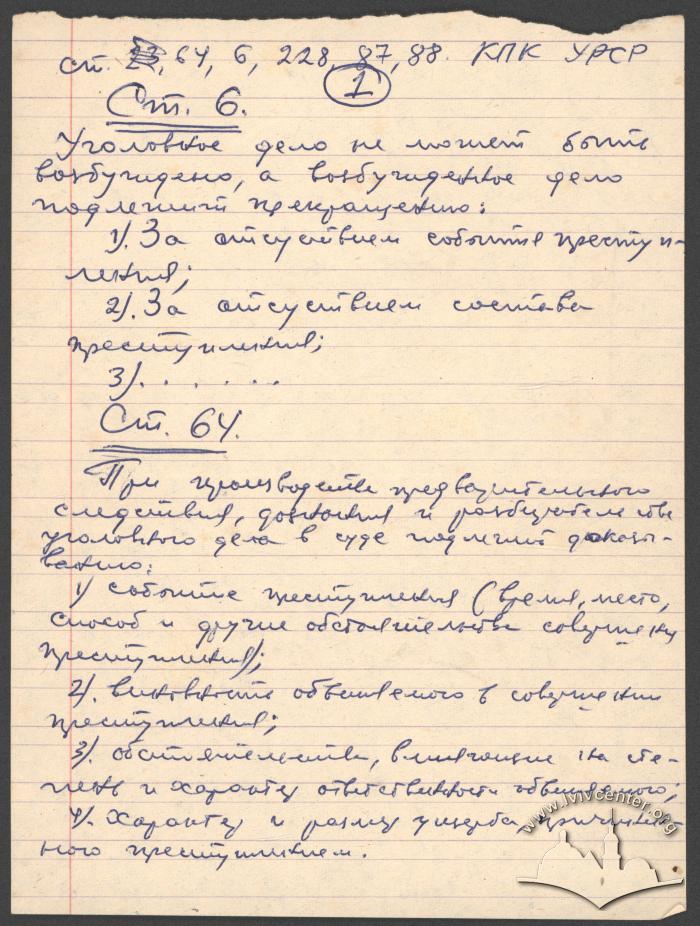 ст. 64, 6, 228, 87, 88. КПК УРСР
1
Ст. 6.
Уголовное дело не может быть
возбуждено, а возбужденное дело
подлежит прекращению:
1). За отсуствием события преступ-
ления;
2). За отсуствием состава
преступления;
3). . . . . .
Ст. 64.
При производстве предварительного
следствия, дознания и разбирательстве
уголовного дела в суде подлежит доказы-
ванию:
1) событие преступления (время, место,
способ и другие обстоятельства совершения
преступления);
2). виновность обвиняемого в совершении
преступления;
3). обстоятельства, влияющие на сте-
пень и характер ответственности обвиняемого;
4). Характер и размер ущерба, причинен-
ного преступлением.
www.lvivcenter.org